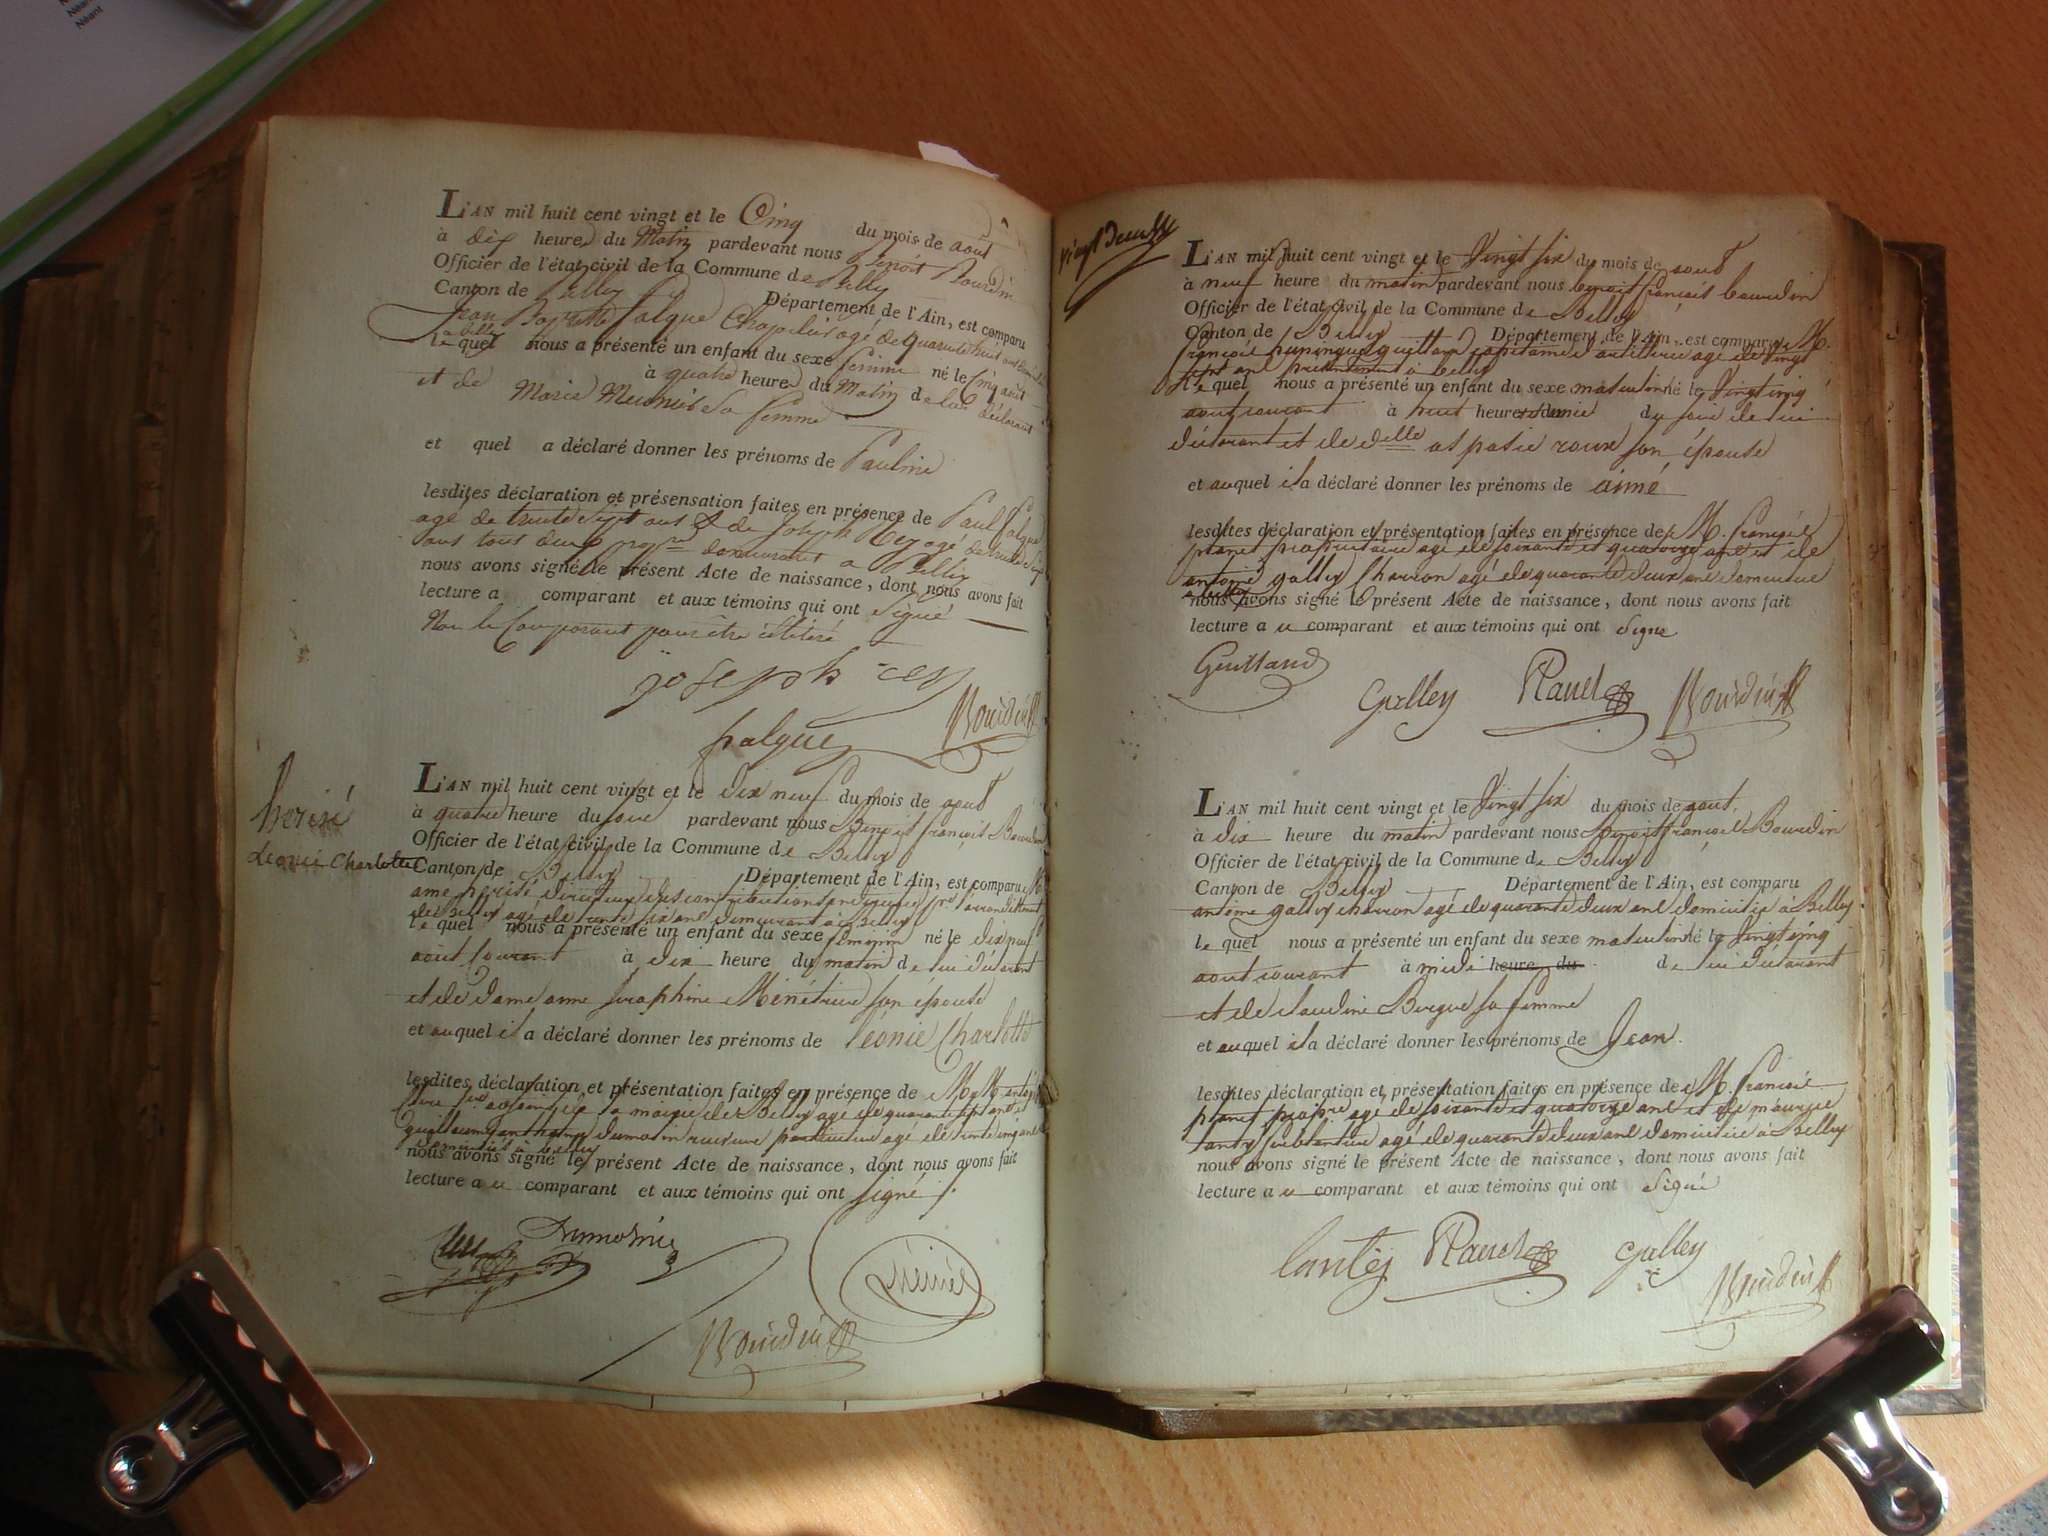 Néant
L'AN mil huit cent vingt et le Cinq du mois de aout
à dix heure du Matin pardevant nous Benoit Bourdin
Officier de l'état civil de la Commune de Belley
Canton de Belley Département de l'Ain, est comparu
Jean Baptiste falque Chapelier agé de quarante huit ans
le quel nous a présenté un enfant du sexe femme né le Cinq août
à quatre heure du Matin de lui déclarant
et de Marie Meunier sa femme
et quel a déclaré donner les prénoms de Pauline
lesdites déclaration et présensation faites en présence de Paul falque
agé de trente Sept ans & de Joseph Rey agé de
ans tout deux demeurant a Belley
nous avons signé le présent Acte de naissance, dont nous avons fait
lecture a comparant et aux témoins qui ont Signé
Non le Comparant pour être illitéré
joseph rey
falque Bourdin
herisé
Léonie Charlotte
L'AN mil huit cent vingt et le dix neuf du mois de aout
à quatre heure du soir pardevant nous Benoit françois Bourdin
Officier de l'état civil de la Commune de Belley
Canton de Belley Département de l'Ain, est comparu M
directeur des contributions
de Belley agé de trente six ans demeurant à Belley
le quel nous a présenté un enfant du sexe feminin né le dix neuf
aout Courant à dix heure du matin de lui déclarant
et de dame anne Seraphine Ménétrier son épouse
et auquel il a déclaré donner les prénoms de léonie Charlotte
lesdites déclaration et présentation faites en présence de M.M.
la mairie de Belley agé de quarante sept ans et
dumolin receveur particulier agé de trente cinq ans
domiciliés à Belley
nous avons signé le présent Acte de naissance, dont nous avons fait
lecture a u comparant et aux témoins qui ont signé
Bourdin
L'AN mil huit cent vingt et le Vingt six du mois de aout
à neuf heure du matin pardevant nous benoit françois bourdin
Officier de l'état civil de la Commune de Belley
Canton de Belley Département de l'Ain, est comparu M.
françois guilland capitaine d'artillerie agé de vingt
sept ans présentement à belley
le quel nous a présenté un enfant du sexe masculin né le Vingt cinq
aout courant à huit heures du soir de lui
déclarant et de delle aspasie roux son épouse
et auquel il a déclaré donner les prénoms de aimé
lesdites déclaration et présentation faites en présence de M. françois
planet propriétaire agé de soixante et quatorze ans et de
antoine galley Charron agé de quarante deux ans domicilié
a belley
nous avons signé le présent Acte de naissance, dont nous avons fait
lecture a u comparant et aux témoins qui ont Signé
Guilland
Galley Planet Bourdin
L'AN mil huit cent vingt et le Vingt six du mois de aout,
à dix heure du matin pardevant nous Benoit françois Bourdin
Officier de l'état civil de la Commune de Belley
Canton de Belley Département de l'Ain, est comparu
antoine galley charron agé de quarante deux ans domicilié à Belley
le quel nous a présenté un enfant du sexe masculin né le Vingt cinq
aout courant à midi heure du de lui déclarant
et de claudine Burgue sa femme
et auquel il a déclaré donner les prénoms de Jean.
lesdites déclaration et présentation faites en présence de M. françois
planet propre agé de soixante et quatorze ans et de maurice
lantey ferblantier agé de quarante deux ans domicilié à Belley
nous avons signé le présent Acte de naissance, dont nous avons fait
lecture a u comparant et aux témoins qui ont Signé
lantey Planet Galley
Bourdin